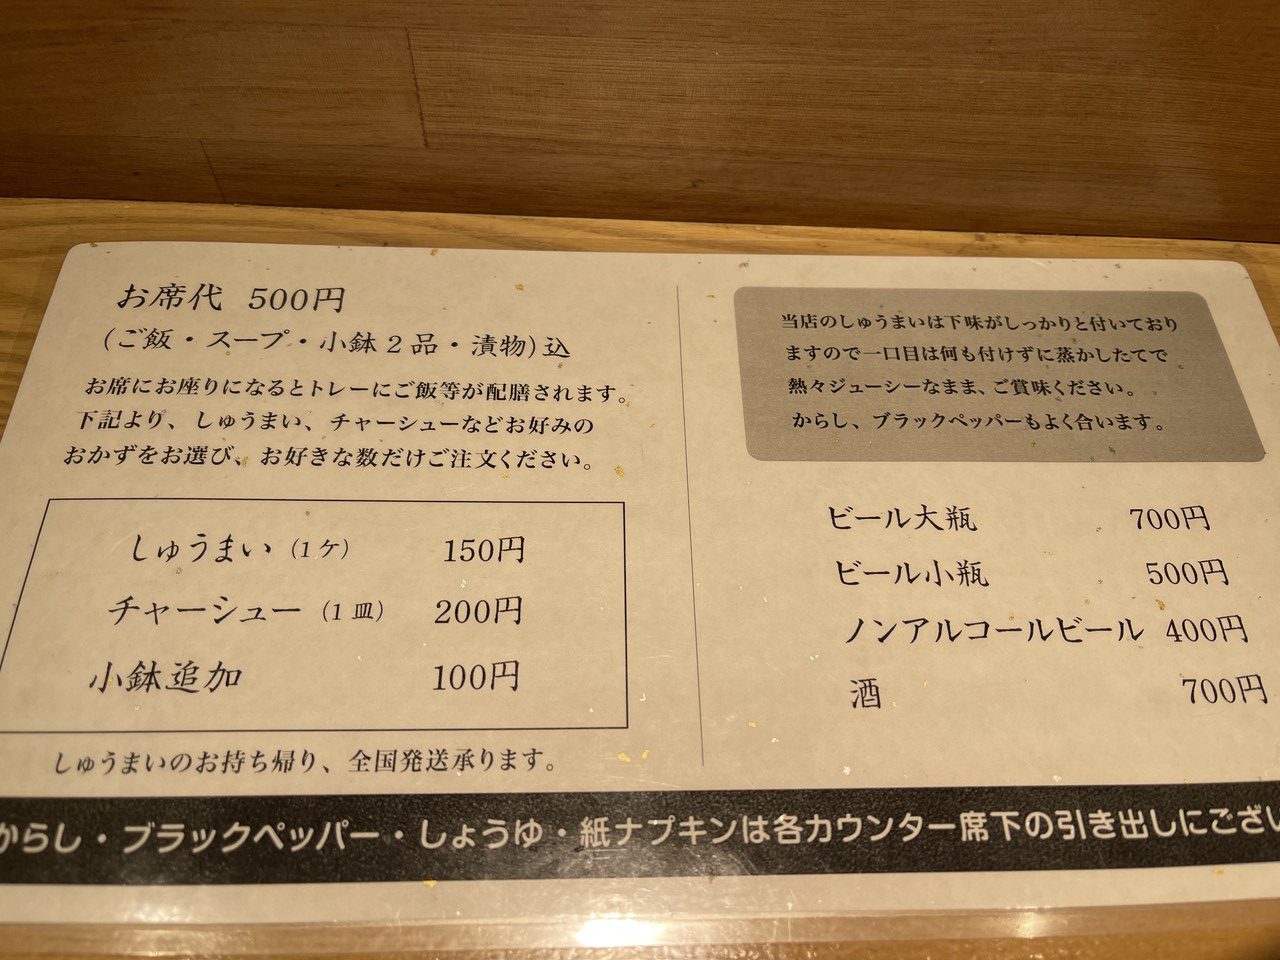 お席代 500円
(ご飯・スープ・小鉢2品・漬物)込
お席にお座りになるとトレーにご飯等が配膳されます。
下記より、しゅうまい、チャーシューなどお好みの
おかずをお選び、お好きな数だけご注文ください。
しゅうまい (1ケ) 150円
チャーシュー (1皿) 200円
小鉢追加 100円
しゅうまいのお持ち帰り、全国発送承ります。
当店のしゅうまいは下味がしっかりと付いており
ますので一口目は何も付けずに蒸かしたてで
熱々ジューシーなまま、ご賞味ください。
からし、ブラックペッパーもよく合います。
ビール大瓶 700円
ビール小瓶 500円
ノンアルコールビール 400円
酒 700円
からし・ブラックペッパー・しょうゆ・紙ナプキンは各カウンター席下の引き出しにござい